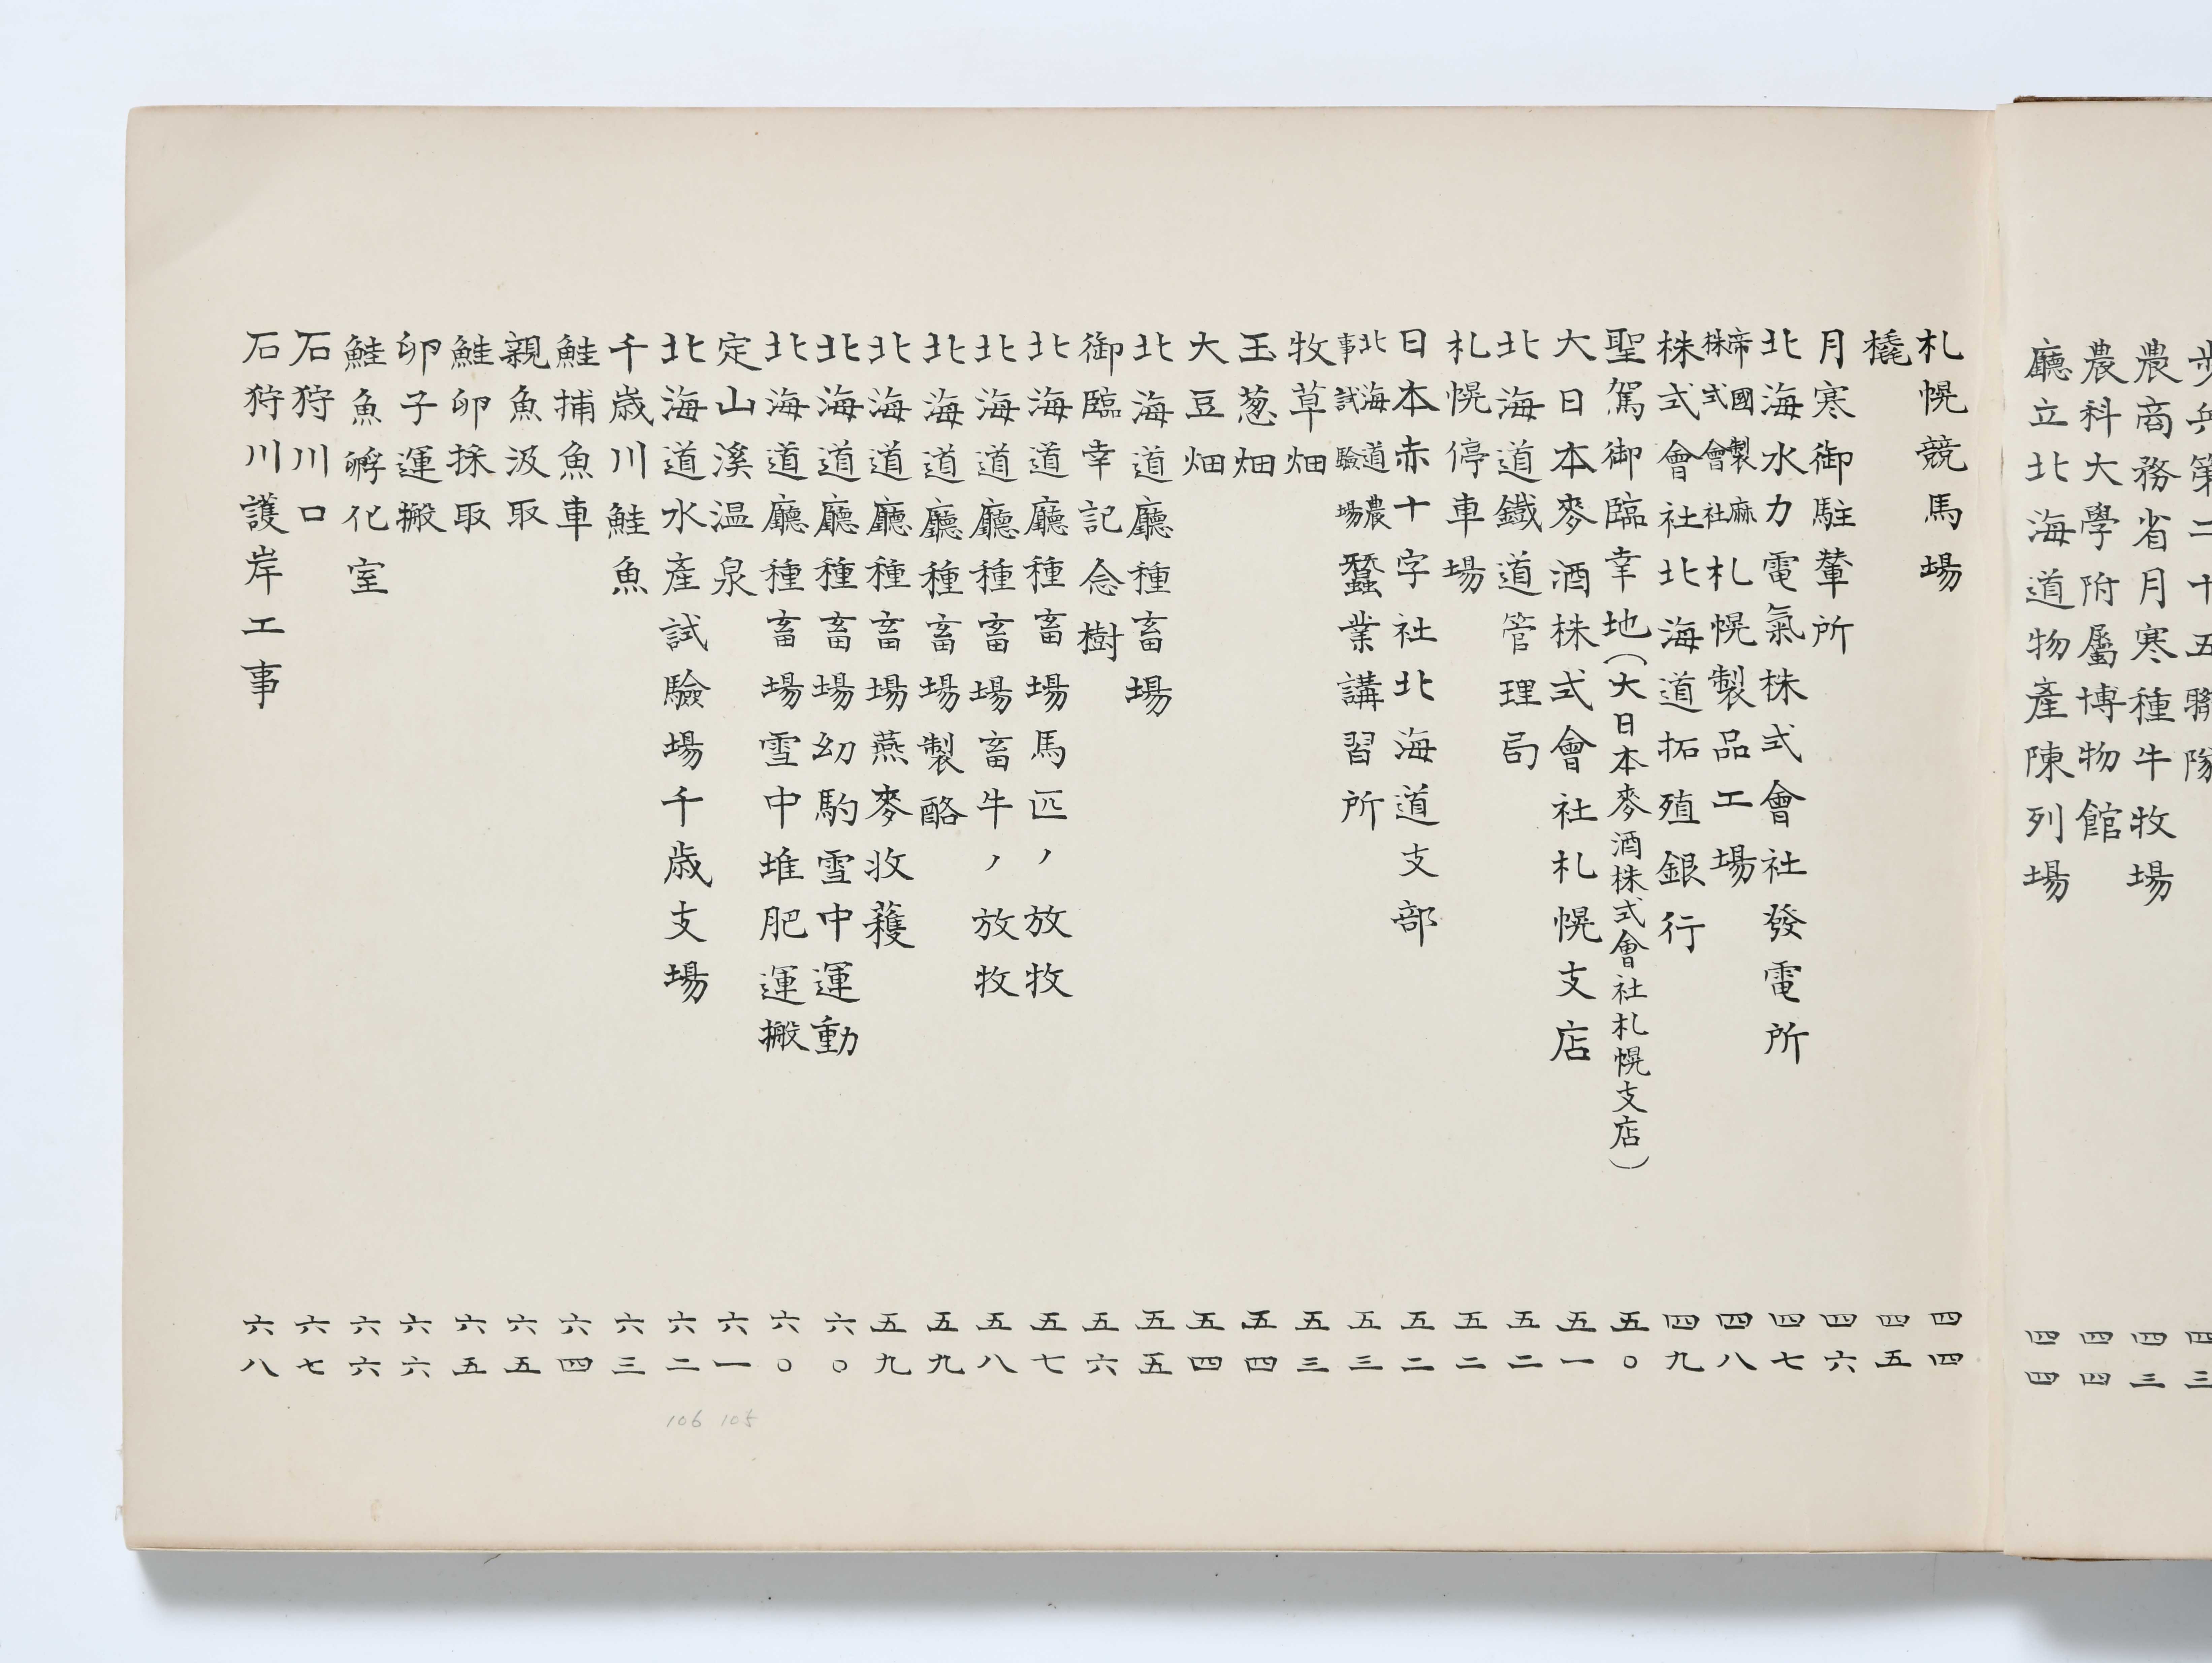 歩兵第二十五聯隊 四三
農商務省月寒種牛牧場 四三
農科大學附屬博物館 四四
廳立北海道物產陳列場 四四
札幌競馬場 四四
橇 四五
月寒御駐輦所 四六
北海水力電氣株式會社發電所 四七
帝國製麻株式會社札幌製品工場 四八
株式會社北海道拓殖銀行 四九
聖駕御臨幸地(大日本麥酒株式會社札幌支店) 五〇
大日本麥酒株式會社札幌支店 五一
北海道鐵道管理局 五二
札幌停車場 五二
日本赤十字社北海道支部 五二
北海道農事試驗場蠶業講習所 五三
牧草畑 五三
玉葱畑 五四
大豆畑 五四
北海道廳種畜場 五五
御臨幸記念樹 五六
北海道廳種畜場馬匹ノ放牧 五七
北海道廳種畜場畜牛ノ放牧 五八
北海道廳種畜場製酪 五九
北海道廳種畜場燕麥收穫 五九
北海道廳種畜場幼駒雪中運動 六〇
北海道廳種畜場雪中堆肥運搬 六〇
定山溪温泉 六一
北海道水產試驗場千歳支場 六二
千歳川鮭魚 六三
鮭捕魚車 六四
親魚汲取 六五
鮭卵採取 六五
卵子運搬 六六
鮭魚孵化室 六六
石狩川口 六七
石狩川護岸工事 六八
106 105